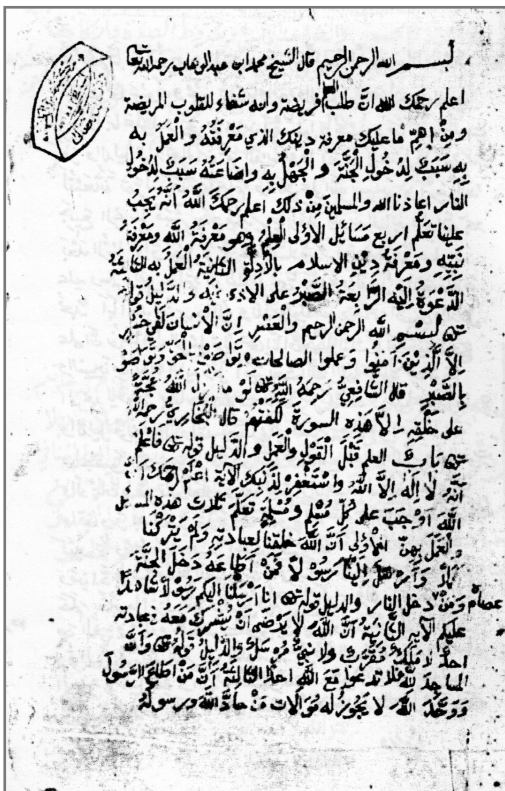 بسم الله الرحمن الرحيم قال الشيخ محمد ابن عبد الوهاب رحمه الله تعا
اعلم رحمك الله انّ طلب العلم فريضة وانه شفاء للقلوب المريضة
ومِنْ اهمِّ ما عليك معرفة دينك الذي مَعْرفتُهُ والعَملُ به
بِهِ سَبَبٌ لدُخُولِ الجنَّةِ والجَهْلُ بِهِ واضاعتُهُ سَبَبٌ لدخول
النار اعاذنا الله والمسلمين مِنْ ذلك اعلم رحمكَ اللهُ أنَّهُ يَجِبُ
علينا تعلّم اربع مسائل الاولى العِلْمُ وهو مَعْرفةُ اللهِ ومَعْرفةُ
نَبِيّهِ ومَعْرفةُ دِيْنِ الاسلام بالادلَّةِ الثانيةُ العَمَلُ به الثالثة
الدَّعوةُ اليْهِ الرَّابعةُ الصَّبْرُ على الاذى فيه والدليلُ قوله
تعالى بسم الله الرحمن الرحيم والعَصْرِ اِنَّ الاِنْسانَ لَفي خُسْرٍ
اِلاَّ الَّذِيْنَ آمنُوا وعملوا الصالحات وتواصَوْا بالحَقِّ وتواصَوْا
بِالصَّبْرِ قال الشَّافِعيُّ رحمهُ الله تعالى لَوْ ما أنزل اللهُ حُجَّةً
على خَلْقِهِ اِلاَّ هَذه السورةَ لَكَفَتْهُمْ قال البُخاريُّ رحمه الله
تعالى بابٌ العلم قَبْلَ القَوْلِ والعَمَلِ والدَّليل قوله تعالى فاعْلَمْ
أنَّهُ لا اِلهَ اِلاَّ اللهُ واسْتَغْفِرْ لِذَنْبِكَ الآية اعْلَمْ رحمك الله أنَّ
اللهَ اَوْجَبَ على كُلِّ مُسْلِمٍ ومُسْلِمَةٍ تَعلُّمَ ثلاث هَذِهِ المسائل
والعَمَلَ بِهِنَّ الاُوْلَى أنَّ اللهَ خلقنا لعبادته ولَمْ يَتْرُكْنَا
هَمَلاً وأرسل اِلَيْنَا رسُولاً فَمَنْ أطاعَهُ دَخَلَ الجنَّةَ
ومَنْ عصاه دخل النار والدليل قوله تعالى انا ارْسَلْنا اليكم رسُولاً شاهدًا
عليكم الآية الثَّانيةُ أنَّ اللهَ لا يَرْضَى أنْ يُشْرَكَ مَعهُ في عبادته
احدٌ لا مَلَكٌ مُقَرَّبٌ ولا نبيٌّ مُرْسَلٌ والدَّليلُ قولُهُ تعالى وأنَّ
المساجدَ لِلَّهِ فلا تدعوا معَ اللهِ احدًا الثالثةُ أنَّ مَنْ اطاعَ الرسولَ
ووحَّدَ اللهَ لا يَجُوْزُ لَهُ مُوَالات مَنْ حادَّ اللهَ ورسوله